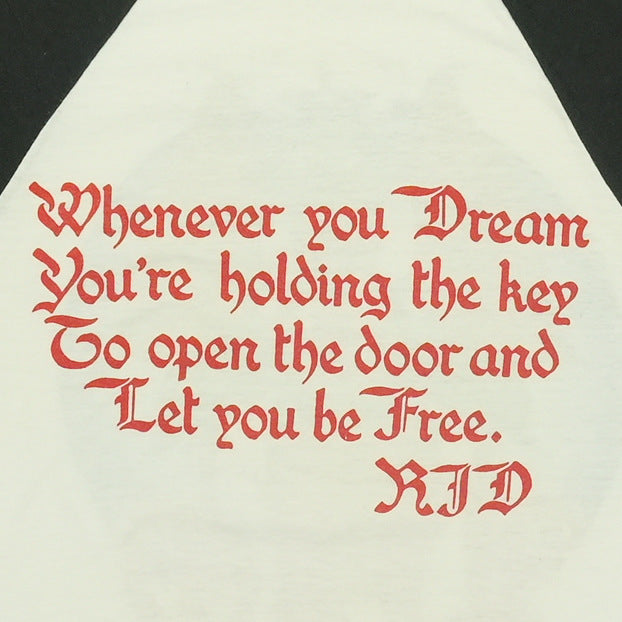 Whenever you Dream
You're holding the key
To open the door and
Let you be Free.
RJD